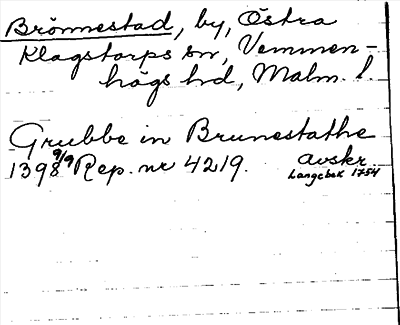 Brönnestad, by, Östra
Klagstorps sn, Vemmen-
högs hd, Malm. l.
Grubbe in Brunestathe
1398 9/9 Rep. nr 4219. avskr.
Langebek 1754